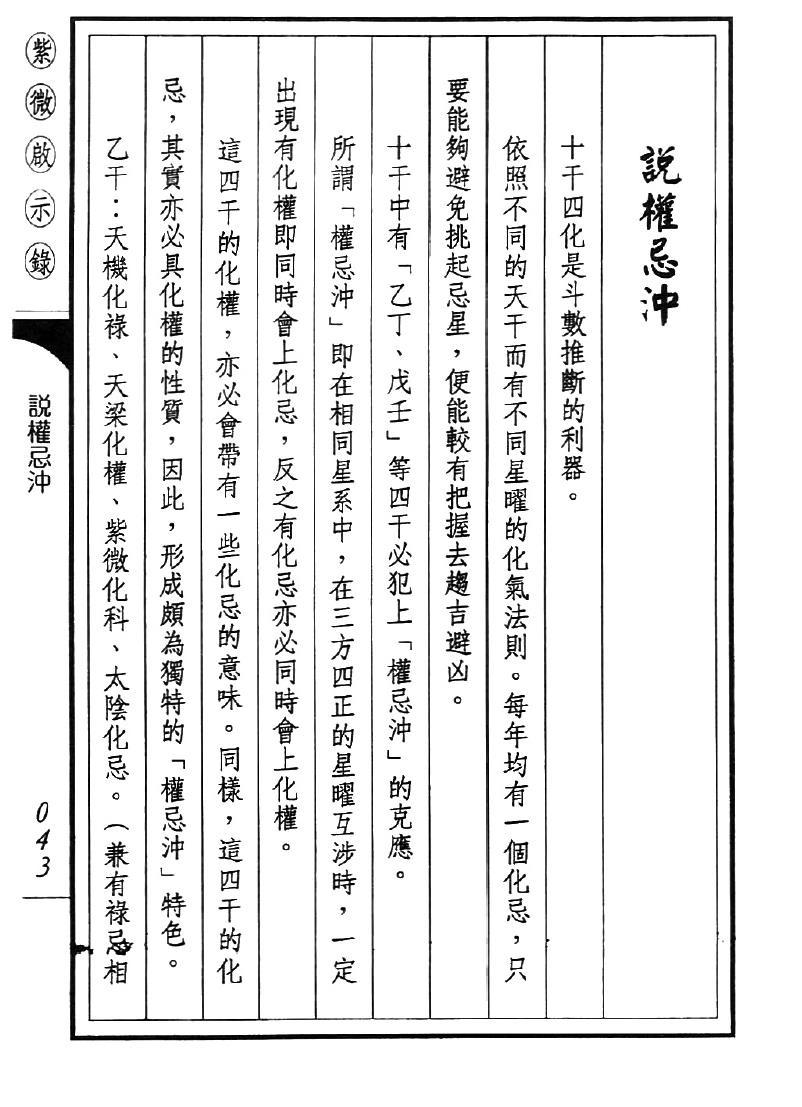 説權忌沖
十干四化是斗數推斷的利器。
依照不同的天干而有不同星曜的化氣法則。每年均有一個化忌，只
要能夠避免挑起忌星，便能較有把握去趨吉避凶。
十干中有「乙丁、戊壬」等四干必犯上「權忌沖」的克應。
所謂「權忌沖」即在相同星系中，在三方四正的星曜互涉時，一定
出現有化權即同時會上化忌，反之有化忌亦必同時會上化權。
這四干的化權，亦必會帶有一些化忌的意味。同樣，這四干的化
忌，其實亦必具化權的性質，因此，形成頗為獨特的「權忌沖」特色。
乙干：天機化祿、天梁化權、紫微化科、太陰化忌。（兼有祿忌相
紫微啟示錄
説權忌沖
043